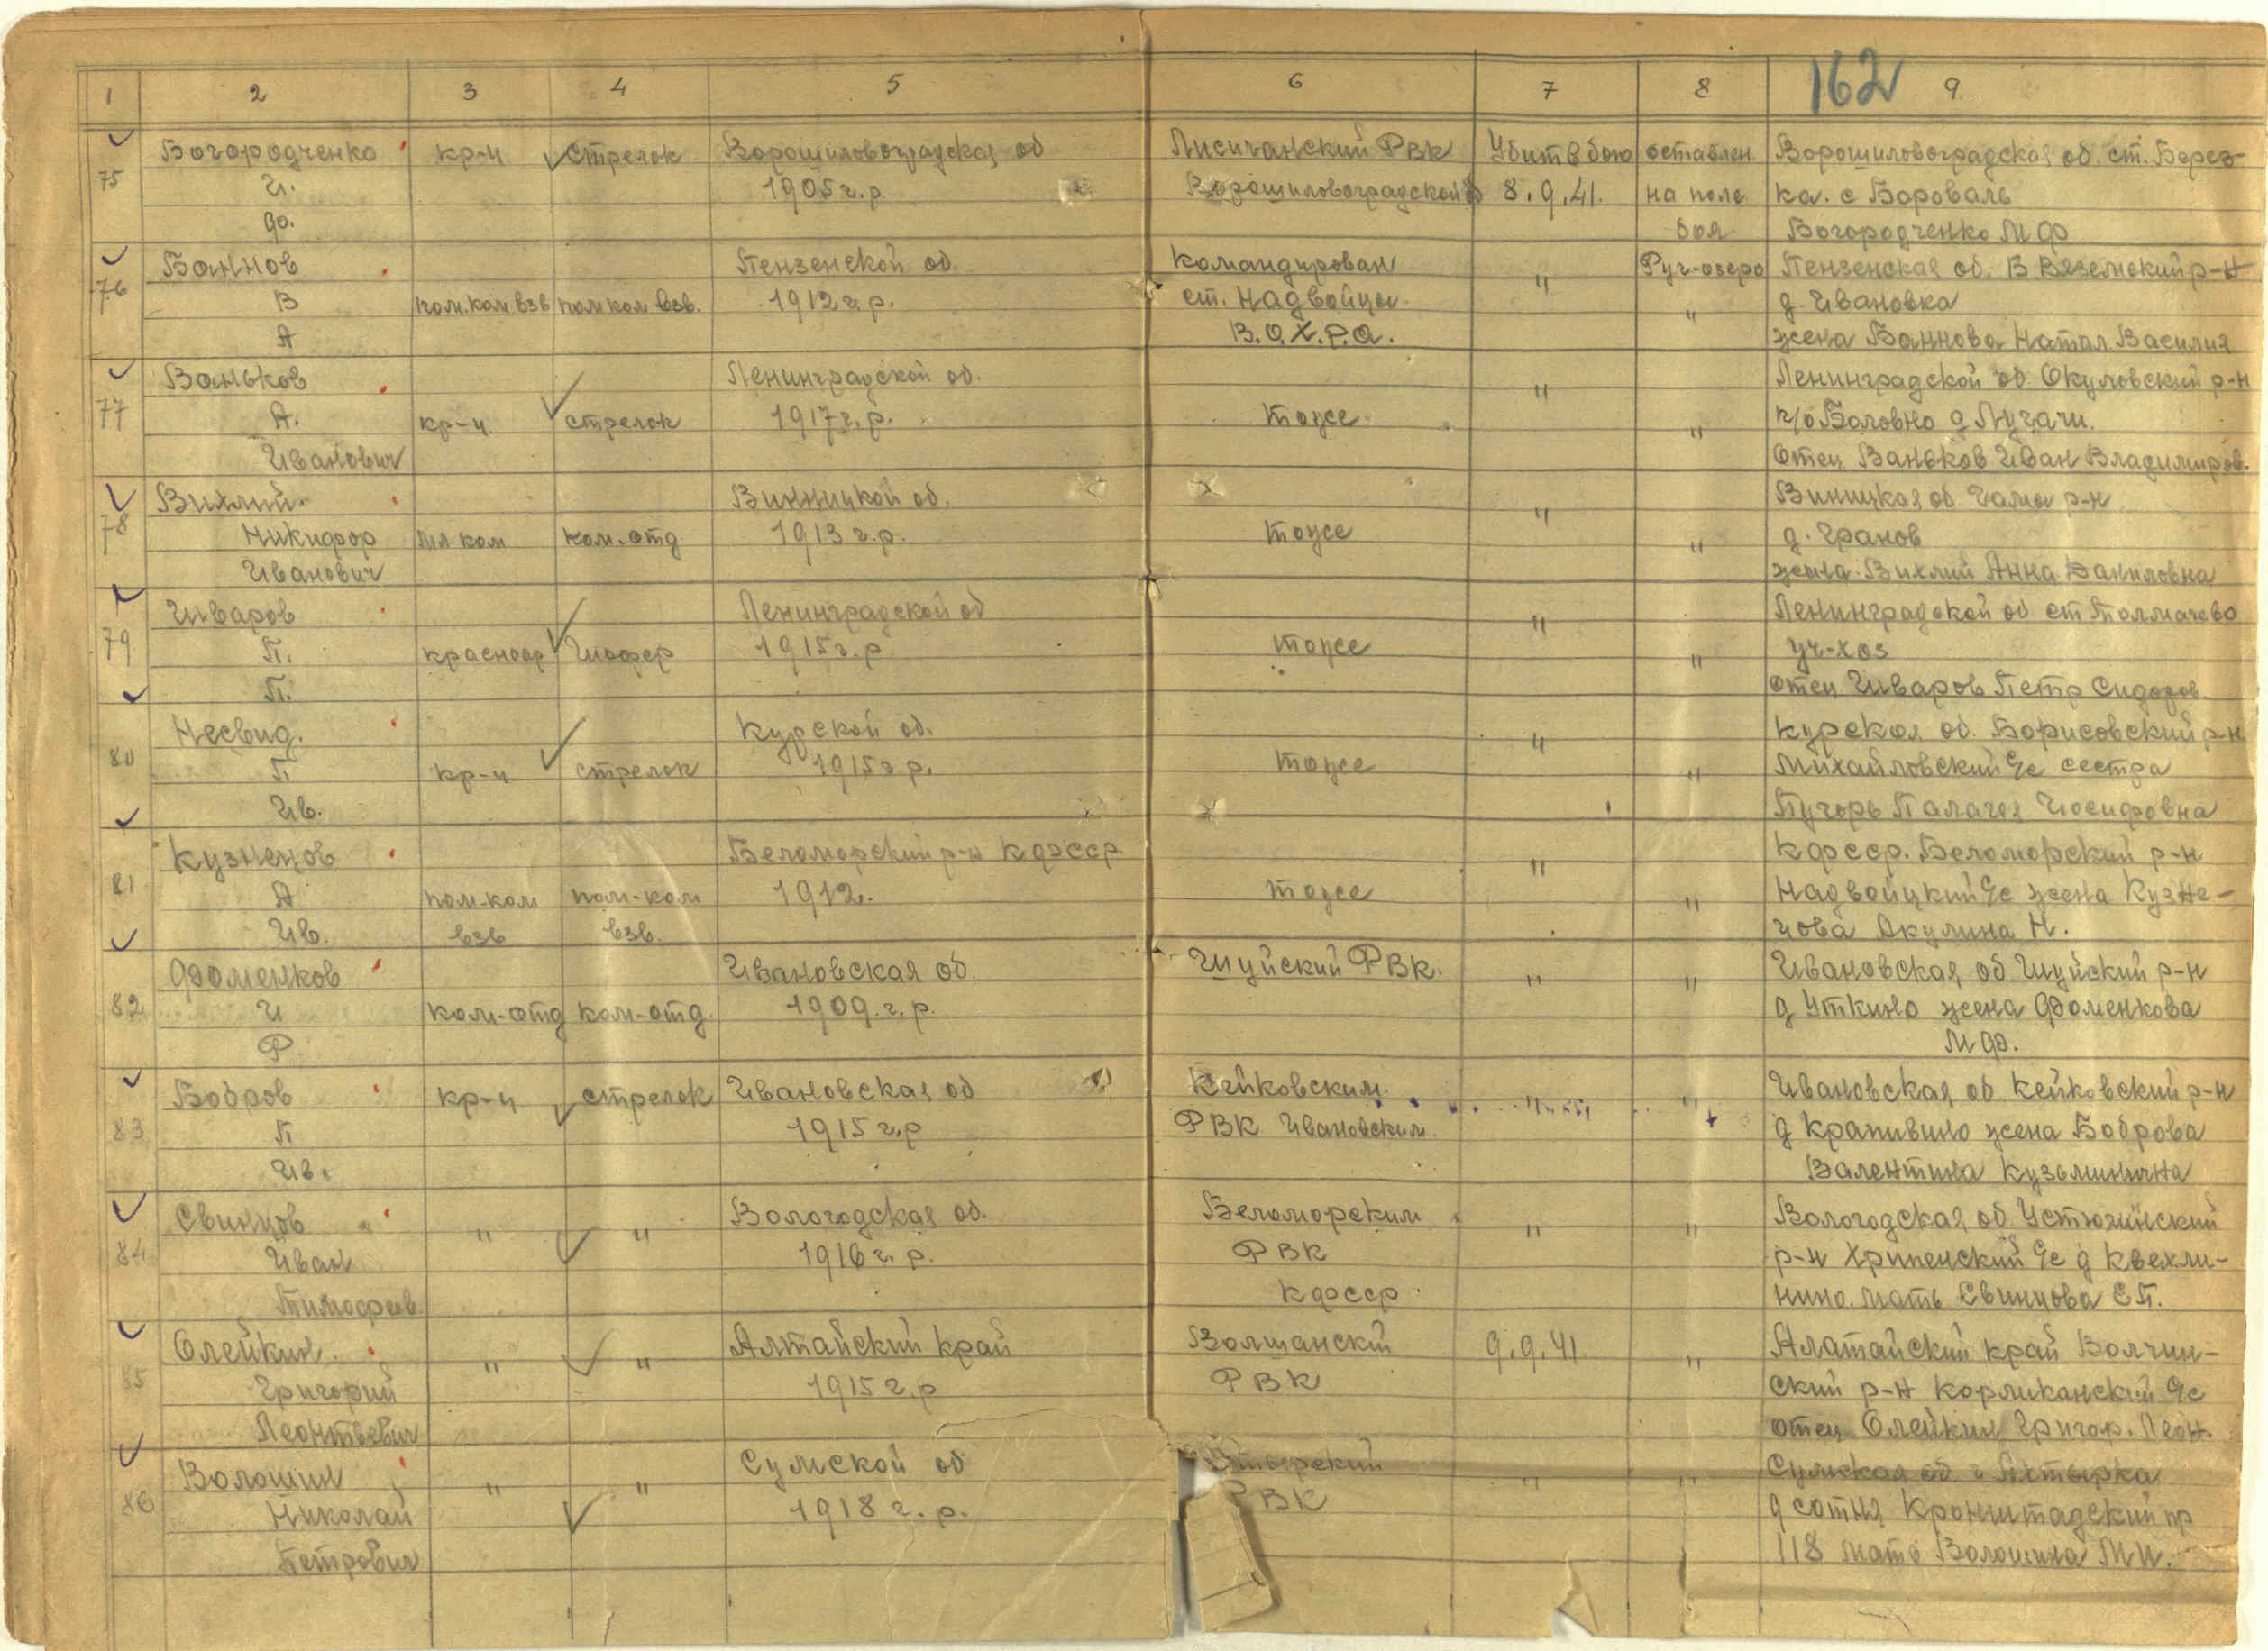 162
1 2 3 4 5 6 7 8 9
Богородченко кр-ц стрелок Ворошиловоградская об Лисичанский РВК Убит в бою оставлен Ворошиловоградская об. ст. Берез-
75 И. 1905 г.р. Ворошиловоградской 8.9.41. на поле ка. с Бороваль
Ф. боя Богородченко М Ф
Баннов Пензенской об. Командирован " Руг-озеро Пензенская об. В Вяземский р-н
76 В пом.ком взв пом ком взв. 1912 г.р. ст. Надвойцы " д. Ивановка
А В.О.Х.Р.А. жена Баннова Натал Василия
Ваньков Ленинградской об. " Ленинградской об Окуловский р-н
77 А. кр-ц стрелок 1917 г.р. тоже " п/о Боровно д Лучачи.
Иванович Отец Ваньков Иван Владимиров.
Вихлий Винницкой об. " Виницкая об Гама р-н
78 Никифор мл ком ком.отд 1913 г.р. тоже " д. Гранов
Иванович жена Вихлий Анна Даниловна
Шваров Ленинградской об " Ленинградской об ст Толмачево
79 П. красноар Шофер 1915 г.р. тоже " уч-хоз
П. отец Шваров Петр Сидоров
Несвид. Курской об. " Курская об. Борисовский р-н
80 П кр-ц стрелок 1915 г.р. тоже " Михайловский с/с сестра
Ив. Пугорь Палагея Иосифовна
Кузнецов Беломорский р-н КФССР " КФССР. Беломорский р-н
81 А пом-ком пом-ком 1912. тоже " Надвойцкий с/с жена Кузне-
Ив. взв взв. цова Акулина Н.
Фоменков Ивановская об. Шуйский РВК. " " Ивановская об Шуйский р-н
82 И ком-отд ком-отд. 1909.г.р. д Уткино жена Фоменкова
Р М Ф.
Бобров кр-ц стрелок Ивановская об Кейковским " " Ивановская об Кейковский р-н
83 П 1915 г.р РВК Ивановским д Крапивино жена Боброва
Ив. Валентина Кузьминична
Свинцов " " Вологодская об. Беломорским " " Вологодская об Устюжинский
84 Иван 1916 г.р. РВК р-н Хрипенский с/с д Квехли-
Тимофеев КФССР нино. мать Свинцова Е П.
Олейкин " " Алтайский край Волчанский 9.9.41 " Алатайский край Волчин-
85 Григорий 1915 г.р РВК ский р-н Корликанский с/с
Леонтьевич отец Олейкин Григор. Леон.
Волошин " " Сумской об " " Сумская об г Ахтырка
86 Николай 1918 г.р. РВК д сотня Кронштадский пр
Петрович 118 мать Волошина М И.